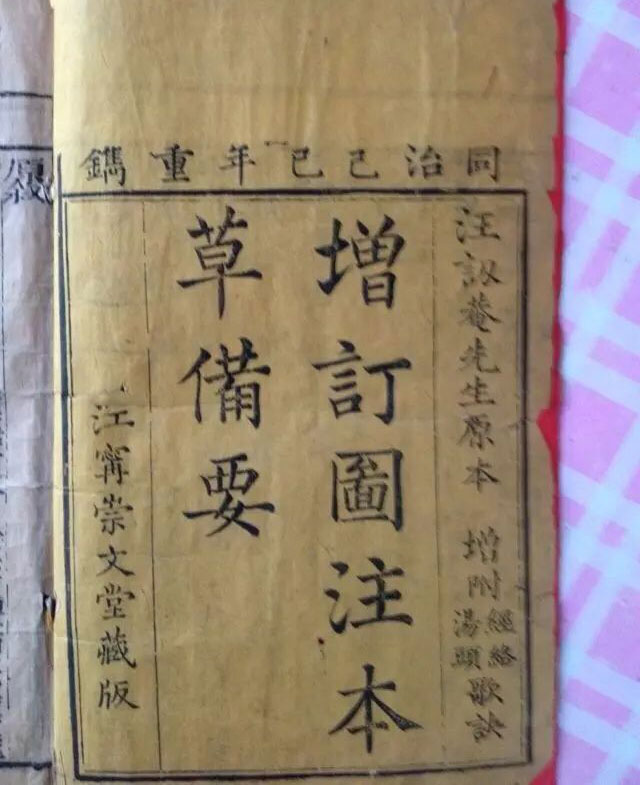 同治己巳年重鐫
汪訒菴先生原本 增附經絡湯頭歌訣
增訂圖注本
草備要
江甯崇文堂藏版